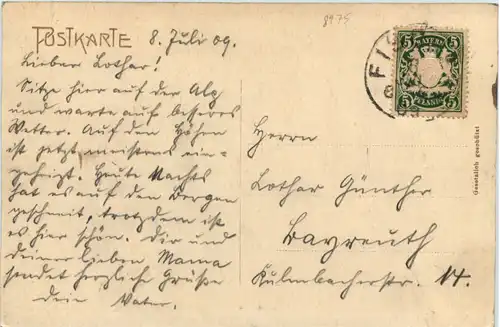 POSTKARTE
8. Juli 09.
8975
Lieber Lothar!
Sitze hier auf der Alp
und warte auf besseres
Wetter. Auf den Höhen
ist jetzt meistens ein-
geheizt. Heute Nachts
hat es auf den Bergen
geschneit, trotzdem ist
es hier schön. Dir und
deiner lieben Mama
sendet herzliche Grüße
dein Vater.
BAYERN
5 5
5 PFENNIG 5
FIS
Herrn
Lothar Günther
Bayreuth
Kulmbacherstr. 14.
Gesetzlich geschützt